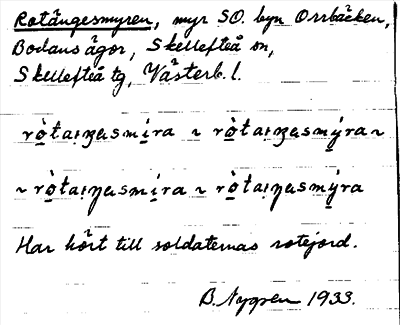 Rotängesmyren, myr SO. byn Orrbäcken,
Bodans ägor, Skellefteå sn,
Skellefteå tg, Västerb. l.
ròtaıŋasmíra ~ ròtaıŋasmýra ~
~ ròtaıŋasmíra ~ ròtaıŋasmýra
Har hört till soldaternas rotejord.
B. Nygren 1933.